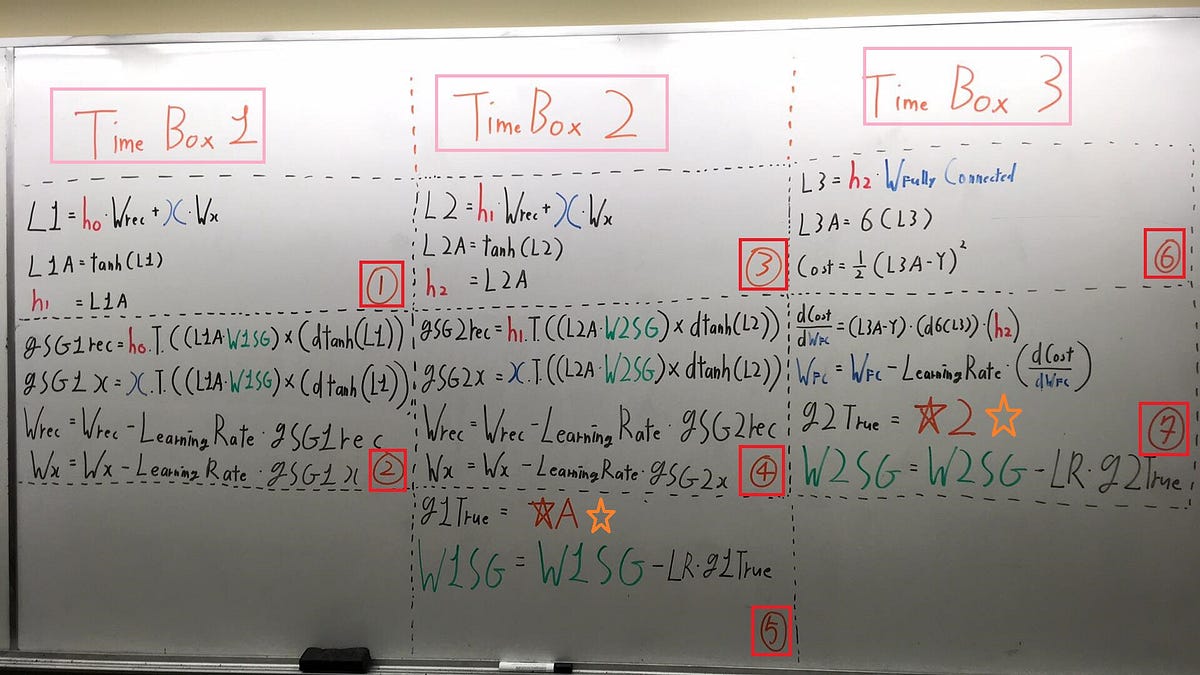 Time Box 1
L1 = h0·Wrec + X·Wx
L1A = tanh(L1)
h1 = L1A
①
gSG1rec = h0.T.((L1A·W1SG)×(dtanh(L1))
gSG1x = X.T.((L1A·W1SG)×(dtanh(L1))
Wrec = Wrec - Learning Rate · gSG1rec
Wx = Wx - Learning Rate · gSG1x
②
Time Box 2
L2 = h1·Wrec + X·Wx
L2A = tanh(L2)
h2 = L2A
③
gSG2rec = h1.T.((L2A·W2SG)×dtanh(L2))
gSG2x = X.T.((L2A·W2SG)×dtanh(L2))
Wrec = Wrec - Learning Rate · gSG2rec
Wx = Wx - Learning Rate · gSG2x
④
g1True = ☆A☆
W1SG = W1SG - LR·g1True
⑤
Time Box 3
L3 = h2·WFully Connected
L3A = 6(L3)
Cost = 1/2 (L3A-Y)²
⑥
dCost/dWFC = (L3A-Y)·(d6(L3))·(h2)
WFC = WFC - Learning Rate·(dCost/dWFC)
g2True = ☆2☆
W2SG = W2SG - LR·g2True
⑦